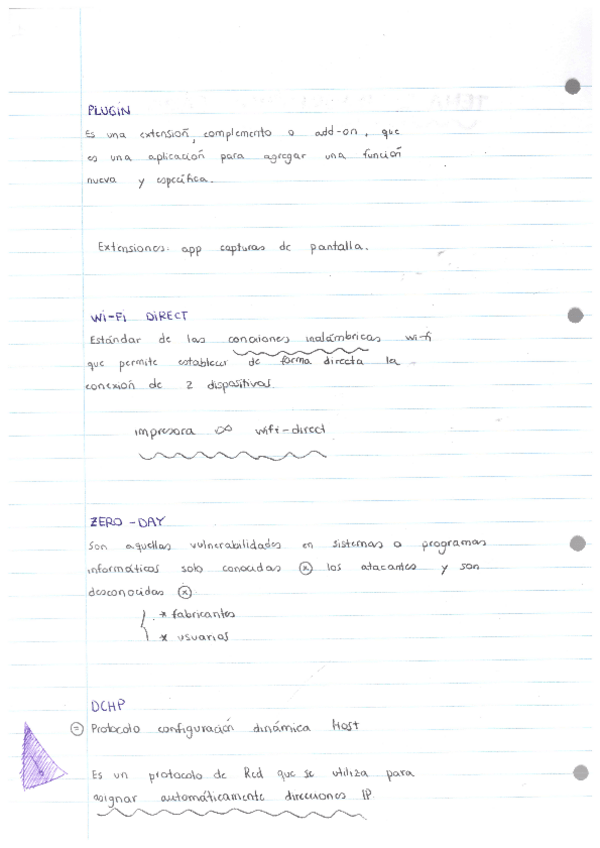 PLUGIN
Es una extensión, complemento o add-on, que
es una aplicación para agregar una función
nueva y específica.
Extensiones: app capturas de pantalla.
Wi-Fi DIRECT
Estándar de las conexiones inalámbricas wi-fi
que permite establecer de forma directa la
conexión de 2 dispositivos
impresora ∞ wifi-direct
ZERO-DAY
Son aquellas vulnerabilidades en sistemas o programas
informáticos solo conocidas ⓧ los atacantes y son
desconocidas ⓧ
* fabricantes
* usuarios
DCHP
⊜ Protocolo configuración dinámica Host
Es un protocolo de Red que se utiliza para
asignar automáticamente direcciones IP.